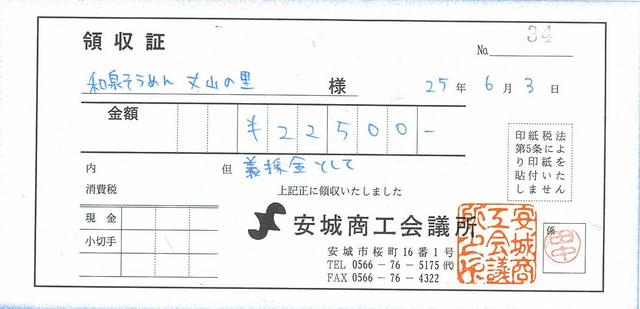 領収証
No. 34
和泉そうめん 丈山の里 様
25年 6月 3日
金額 ¥22500-
印紙税法
第5条によ
り印紙を
貼付いた
しません
内 但 義援金として
消費税
上記正に領収いたしました
現金
小切手
安城商工会議所
安城市桜町16番1号
TEL 0566-76-5175(代)
FAX 0566-76-4322
安城商
工会議
所之印
係
田中